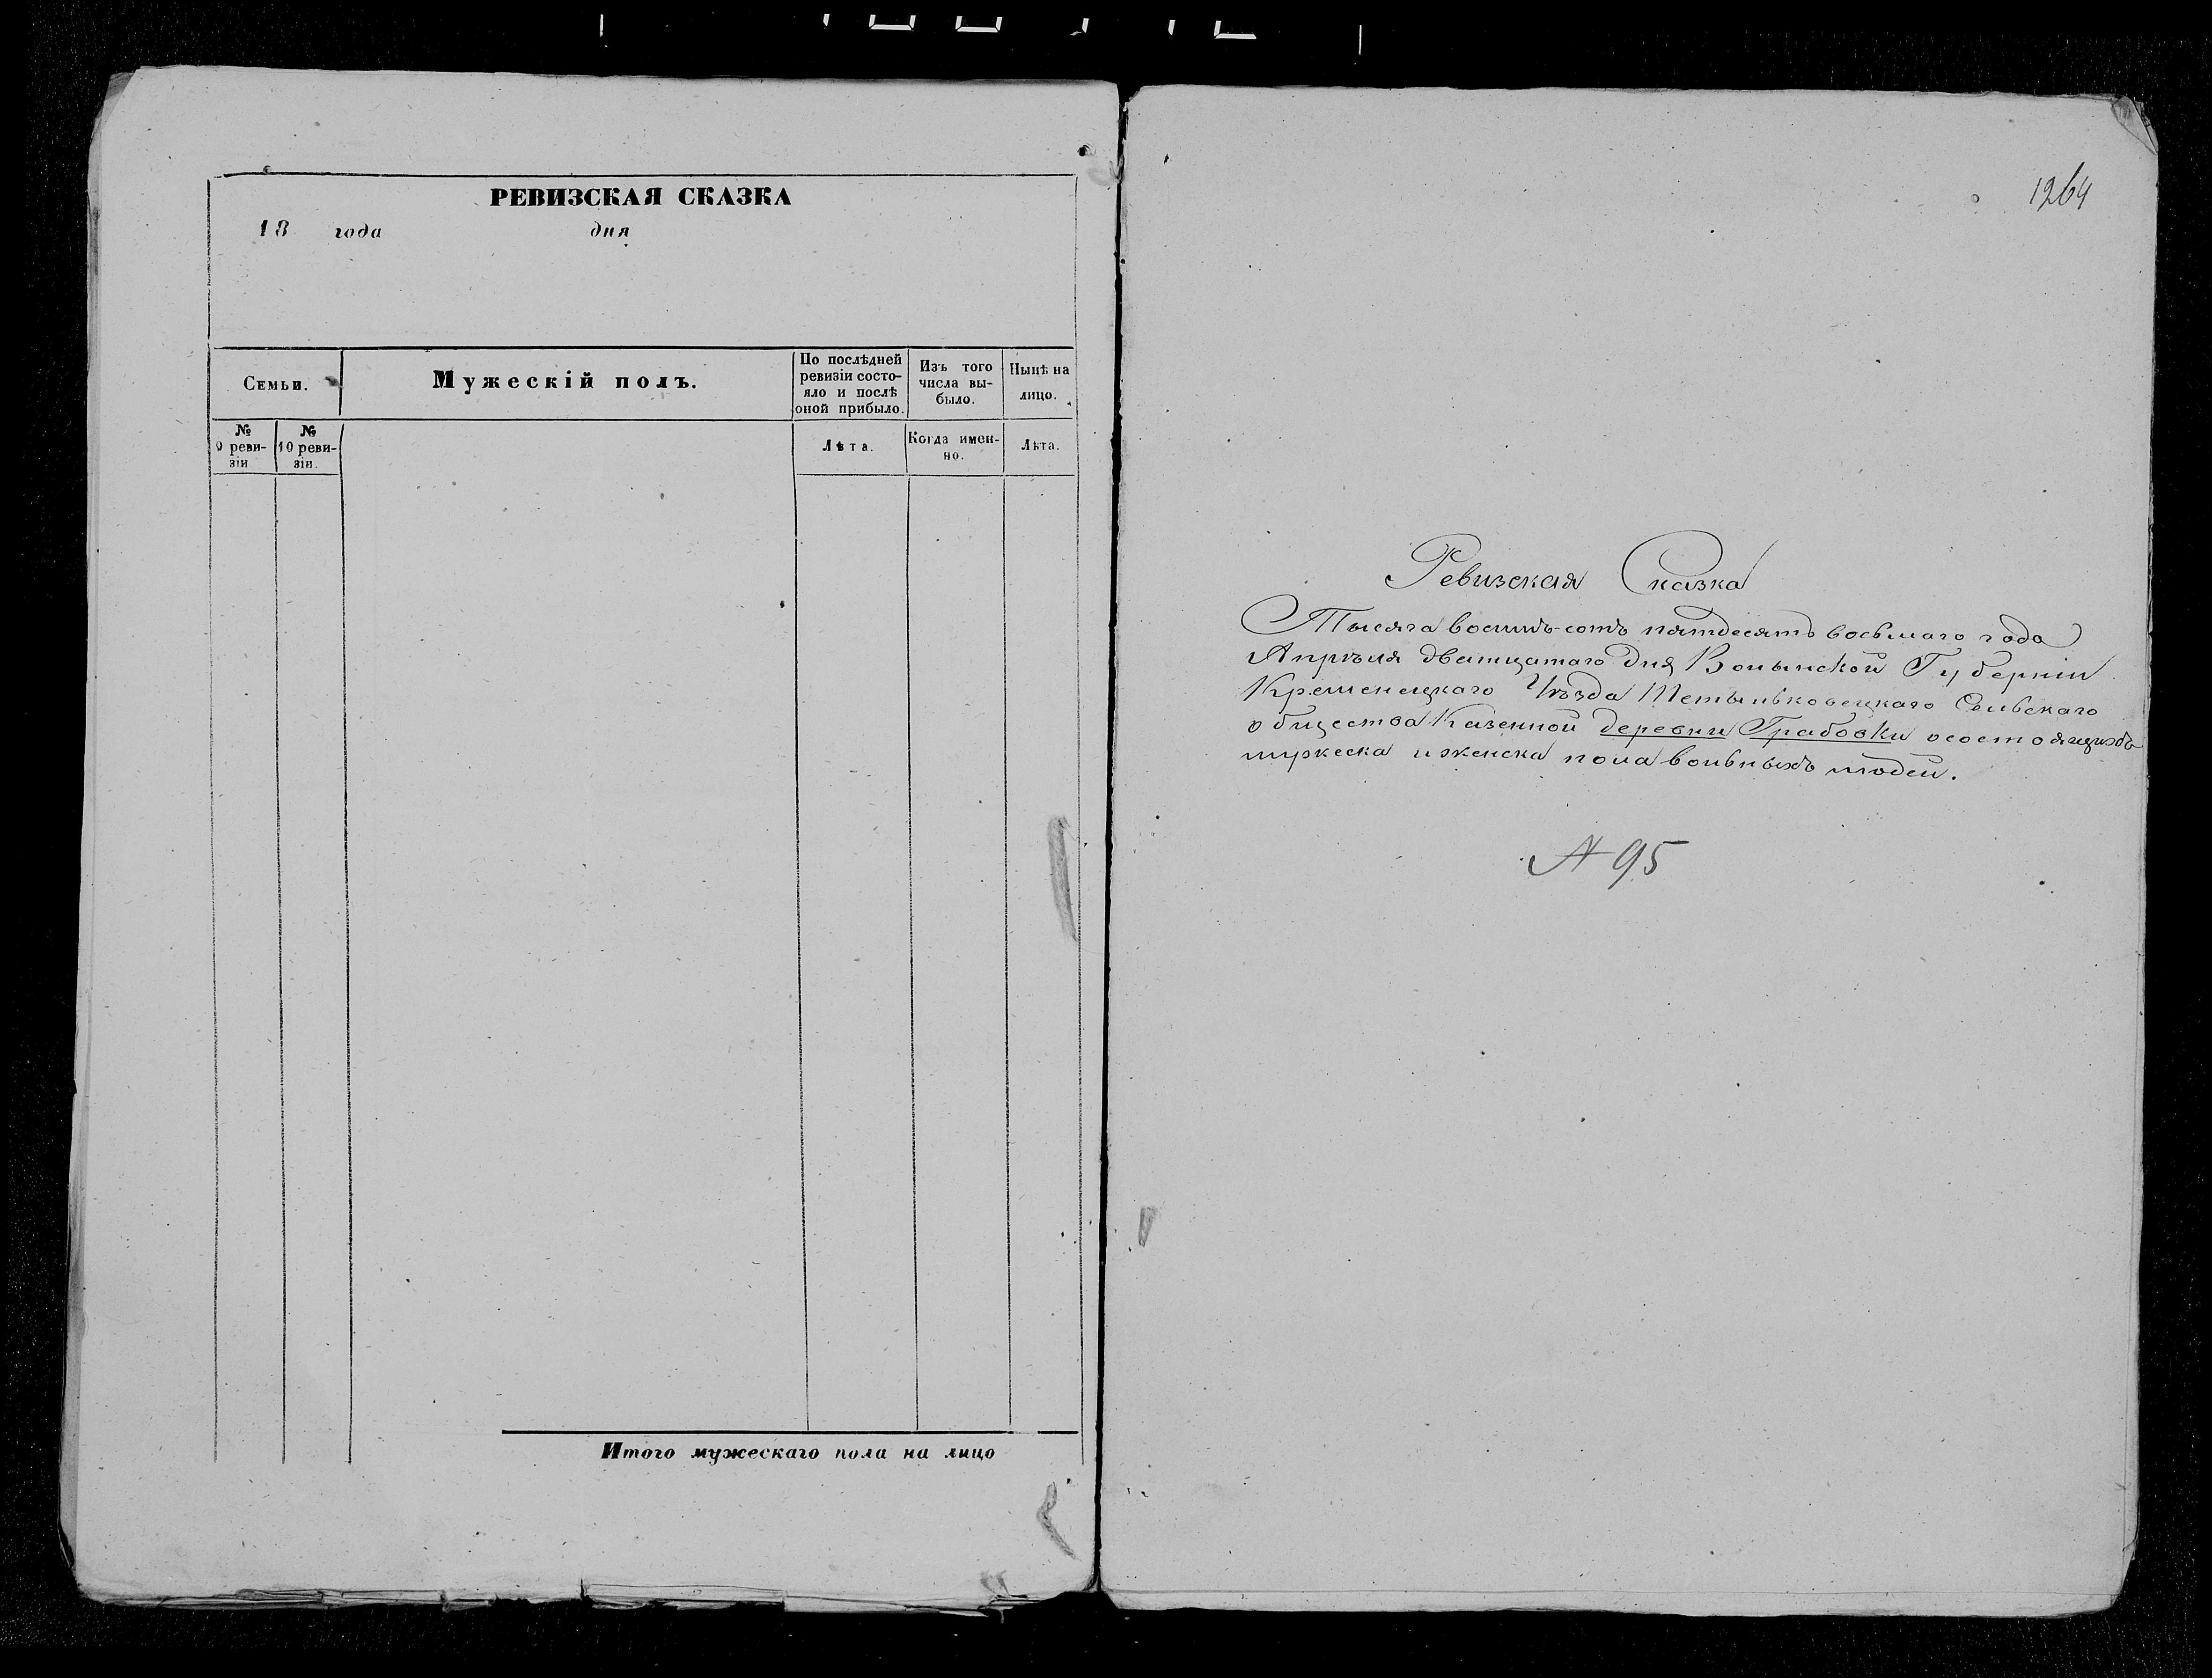 РЕВИЗСКАЯ СКАЗКА
18 года дня
Семьи.
Мужескій полъ.
По послѣдней
ревизіи состо-
яло и послѣ
оной прибыло.
Изъ того
числа вы-
было.
Нынѣ на
лицо.
№
9 реви-
зіи
№
10 реви-
зіи.
Лѣта.
Когда имен-
но.
Лѣта.
Итого мужескаго пола на лицо
1264
Ревизская Сказка
Тысяча восемь-сотъ пятдесятъ восьмаго года
Апрѣля дватцатаго дня Волынской Губерніи
Кременецкаго Уѣзда Тетыльковецкаго Сельскаго
общества Казенной деревни Грабовки осостоящихъ
мужеска и женска пола вольныхъ людей.
№ 95